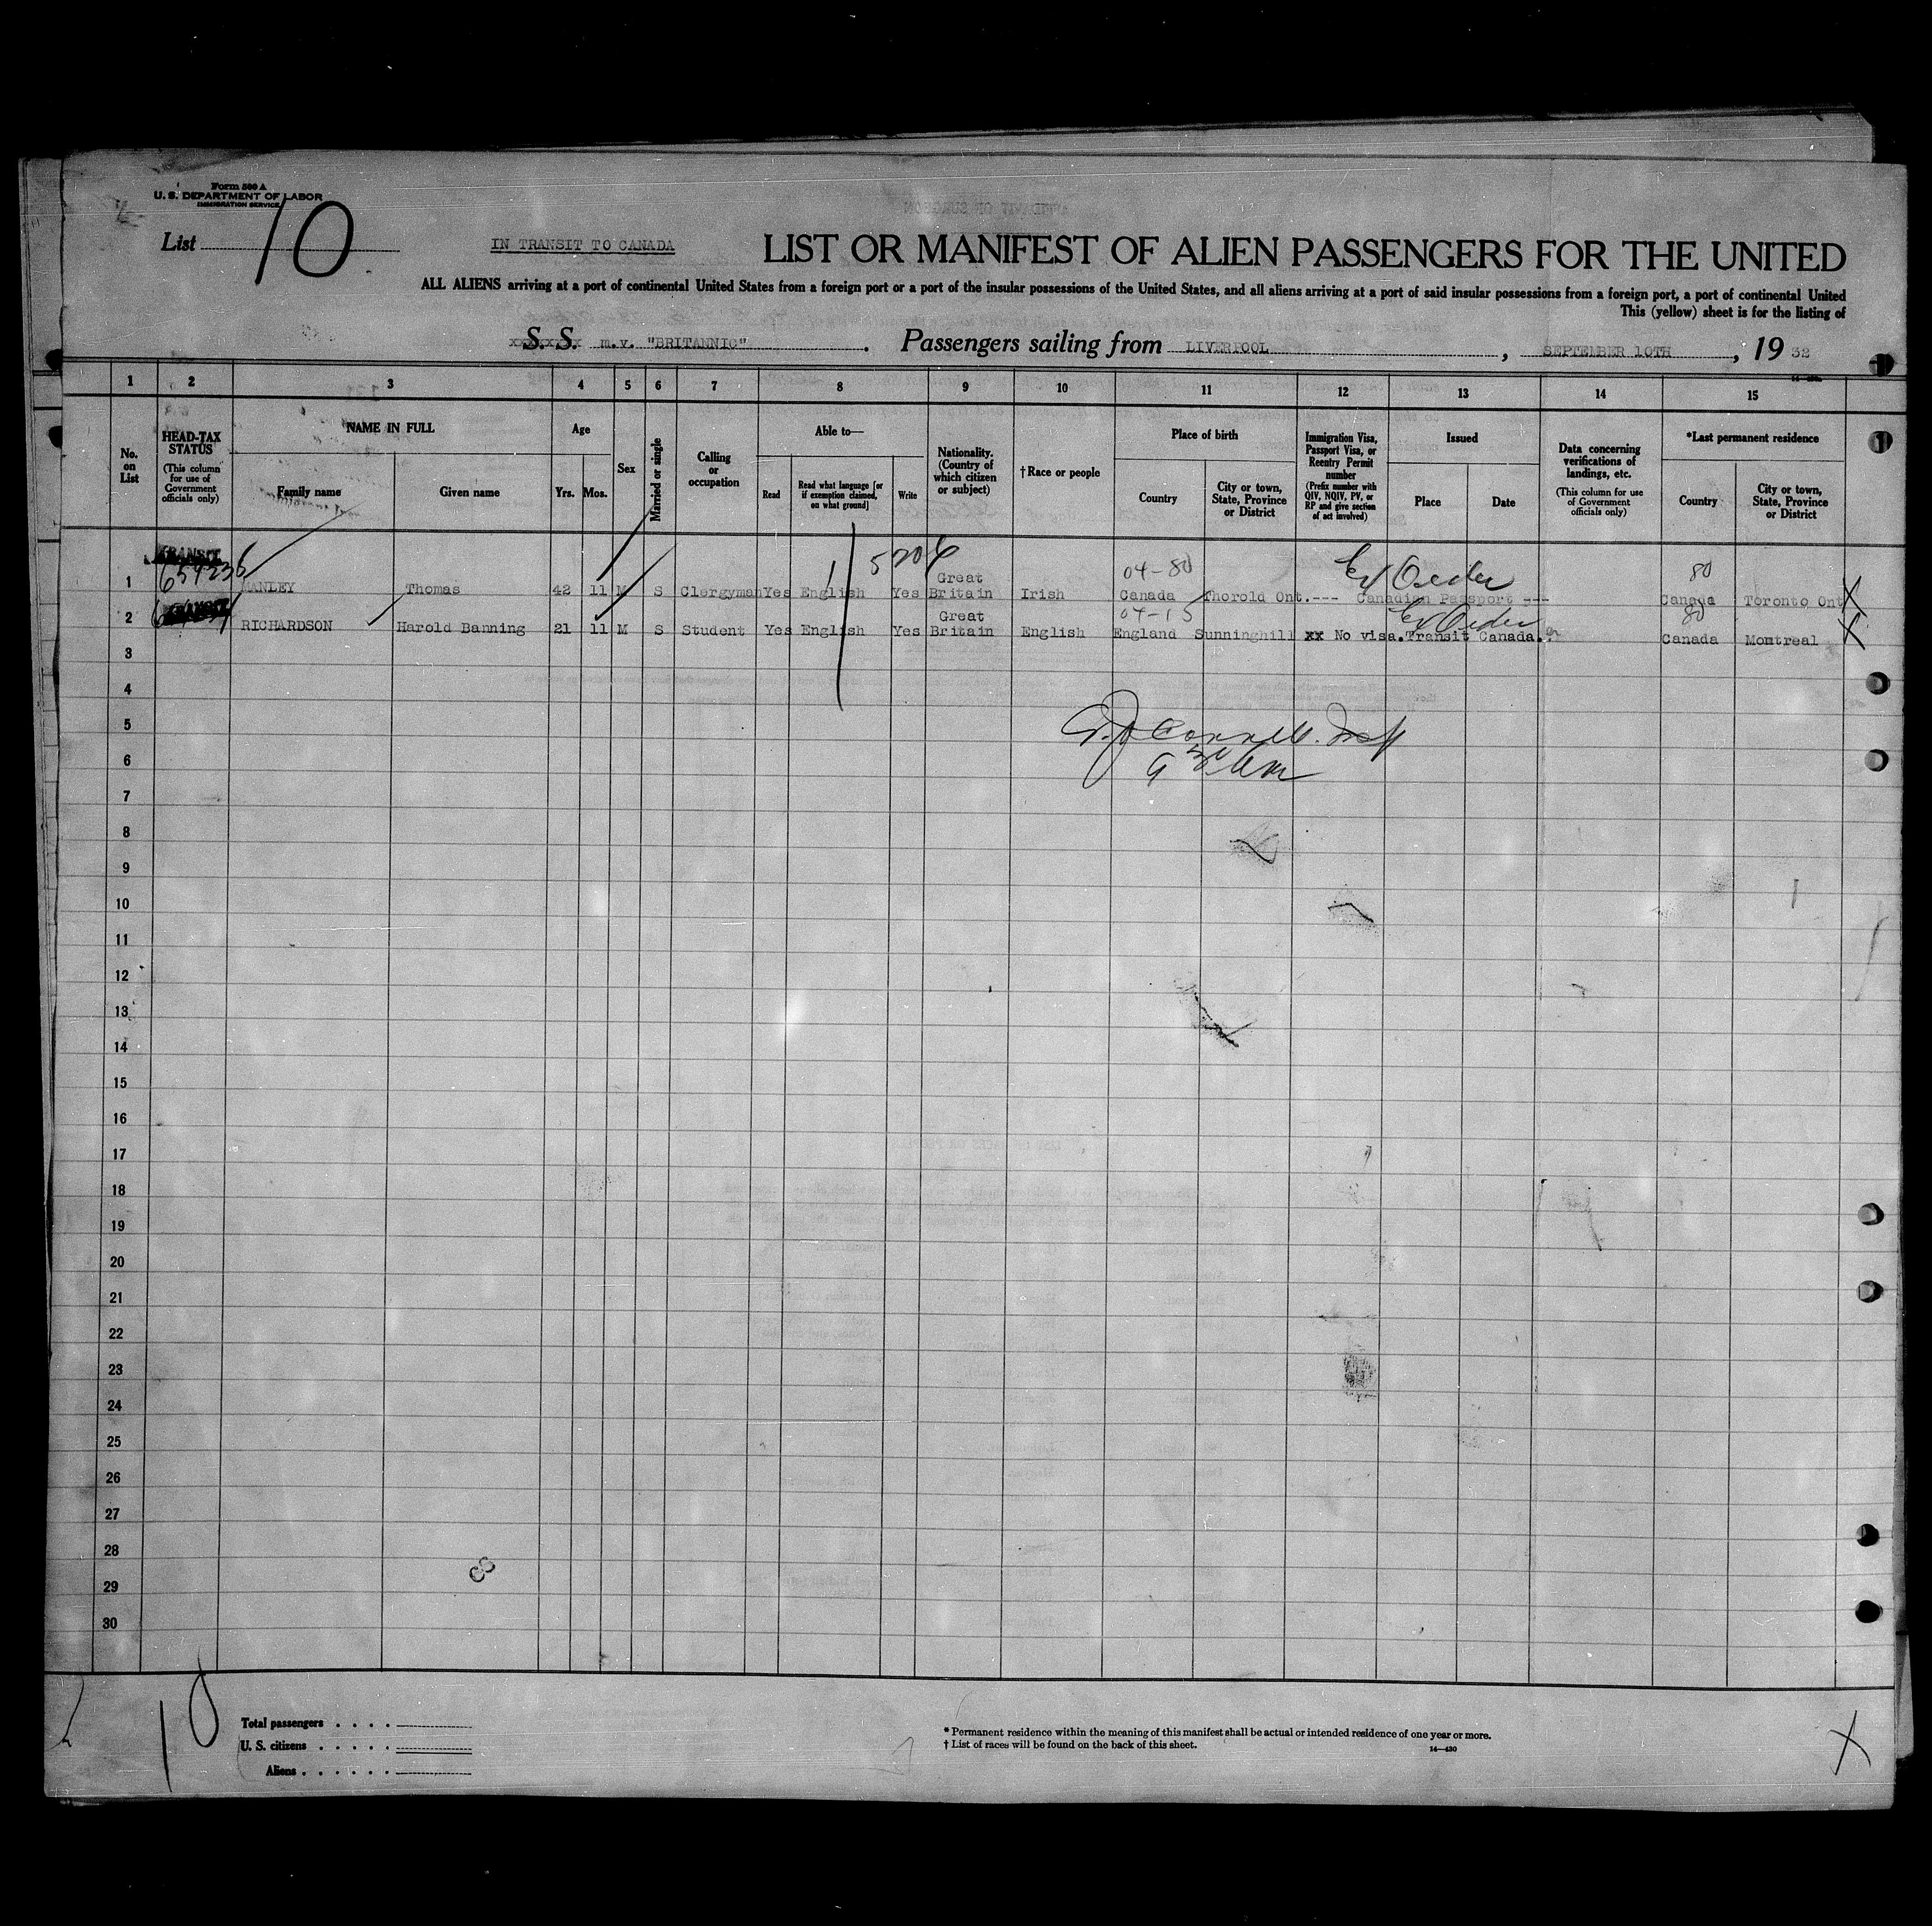 Form 500 A
U. S. DEPARTMENT OF LABOR
IMMIGRATION SERVICE
List 10
IN TRANSIT TO CANADA
LIST OR MANIFEST OF ALIEN PASSENGERS FOR THE UNITED
ALL ALIENS arriving at a port of continental United States from a foreign port or a port of the insular possessions of the United States, and all aliens arriving at a port of said insular possessions from a foreign port, a port of continental United
This (yellow) sheet is for the listing of
S. S. m.v. "BRITANNIC". Passengers sailing from LIVERPOOL, SEPTEMBER 10TH, 19 32
1 2 3 4 5 6 7 8 9 10 11 12 13 14 15
No. on List
HEAD-TAX STATUS
(This column for use of Government officials only)
NAME IN FULL
Family name
Given name
Age
Yrs. Mos.
Sex
Married or single
Calling or occupation
Able to—
Read
Read what language [or if exemption claimed, on what ground]
Write
Nationality. (Country of which citizen or subject)
†Race or people
Place of birth
Country
City or town, State, Province or District
Immigration Visa, Passport Visa, or Reentry Permit number
(Prefix number with QIV, NQIV, PV, or RP and give section of act involved)
Issued
Place
Date
Data concerning verifications of landings, etc.
(This column for use of Government officials only)
*Last permanent residence
Country
City or town, State, Province or District
TRANSIT
5206
04-80
Ex Order
80
1 MANLEY Thomas 42 11 M S Clergyman Yes English Yes Great Britain Irish Canada Thorold Ont. --- Canadian Passport --- Canada Toronto Ont
04-15
Ex Order
80
2 RICHARDSON Harold Banning 21 11 M S Student Yes English Yes Great Britain English England Sunninghill xx No visa. Transit Canada. Canada Montreal
3
4
5
6
7
8
9
10
11
12
13
14
15
16
17
18
19
20
21
22
23
24
25
26
27
28
29
30
10
Total passengers . . . .
U. S. citizens . . . . .
Aliens . . . . . .
* Permanent residence within the meaning of this manifest shall be actual or intended residence of one year or more.
† List of races will be found on the back of this sheet.
14—430
X